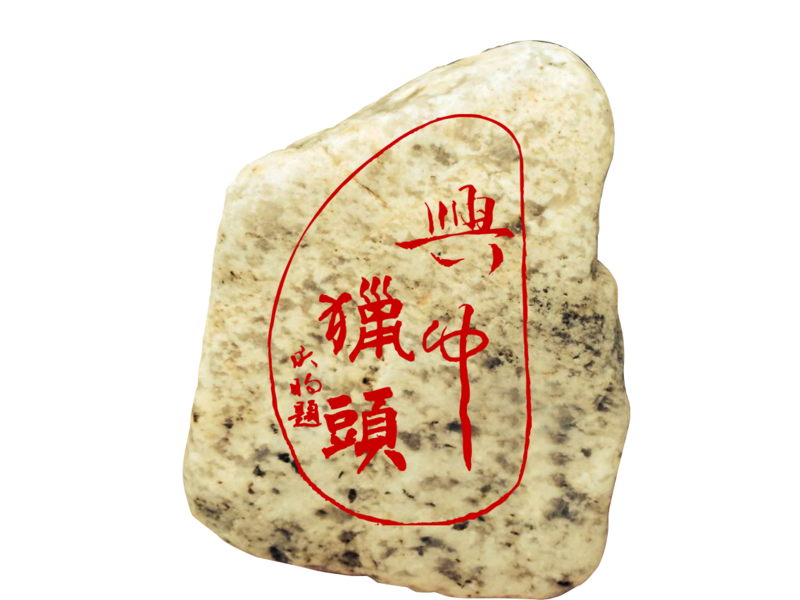 興中
獵頭
題